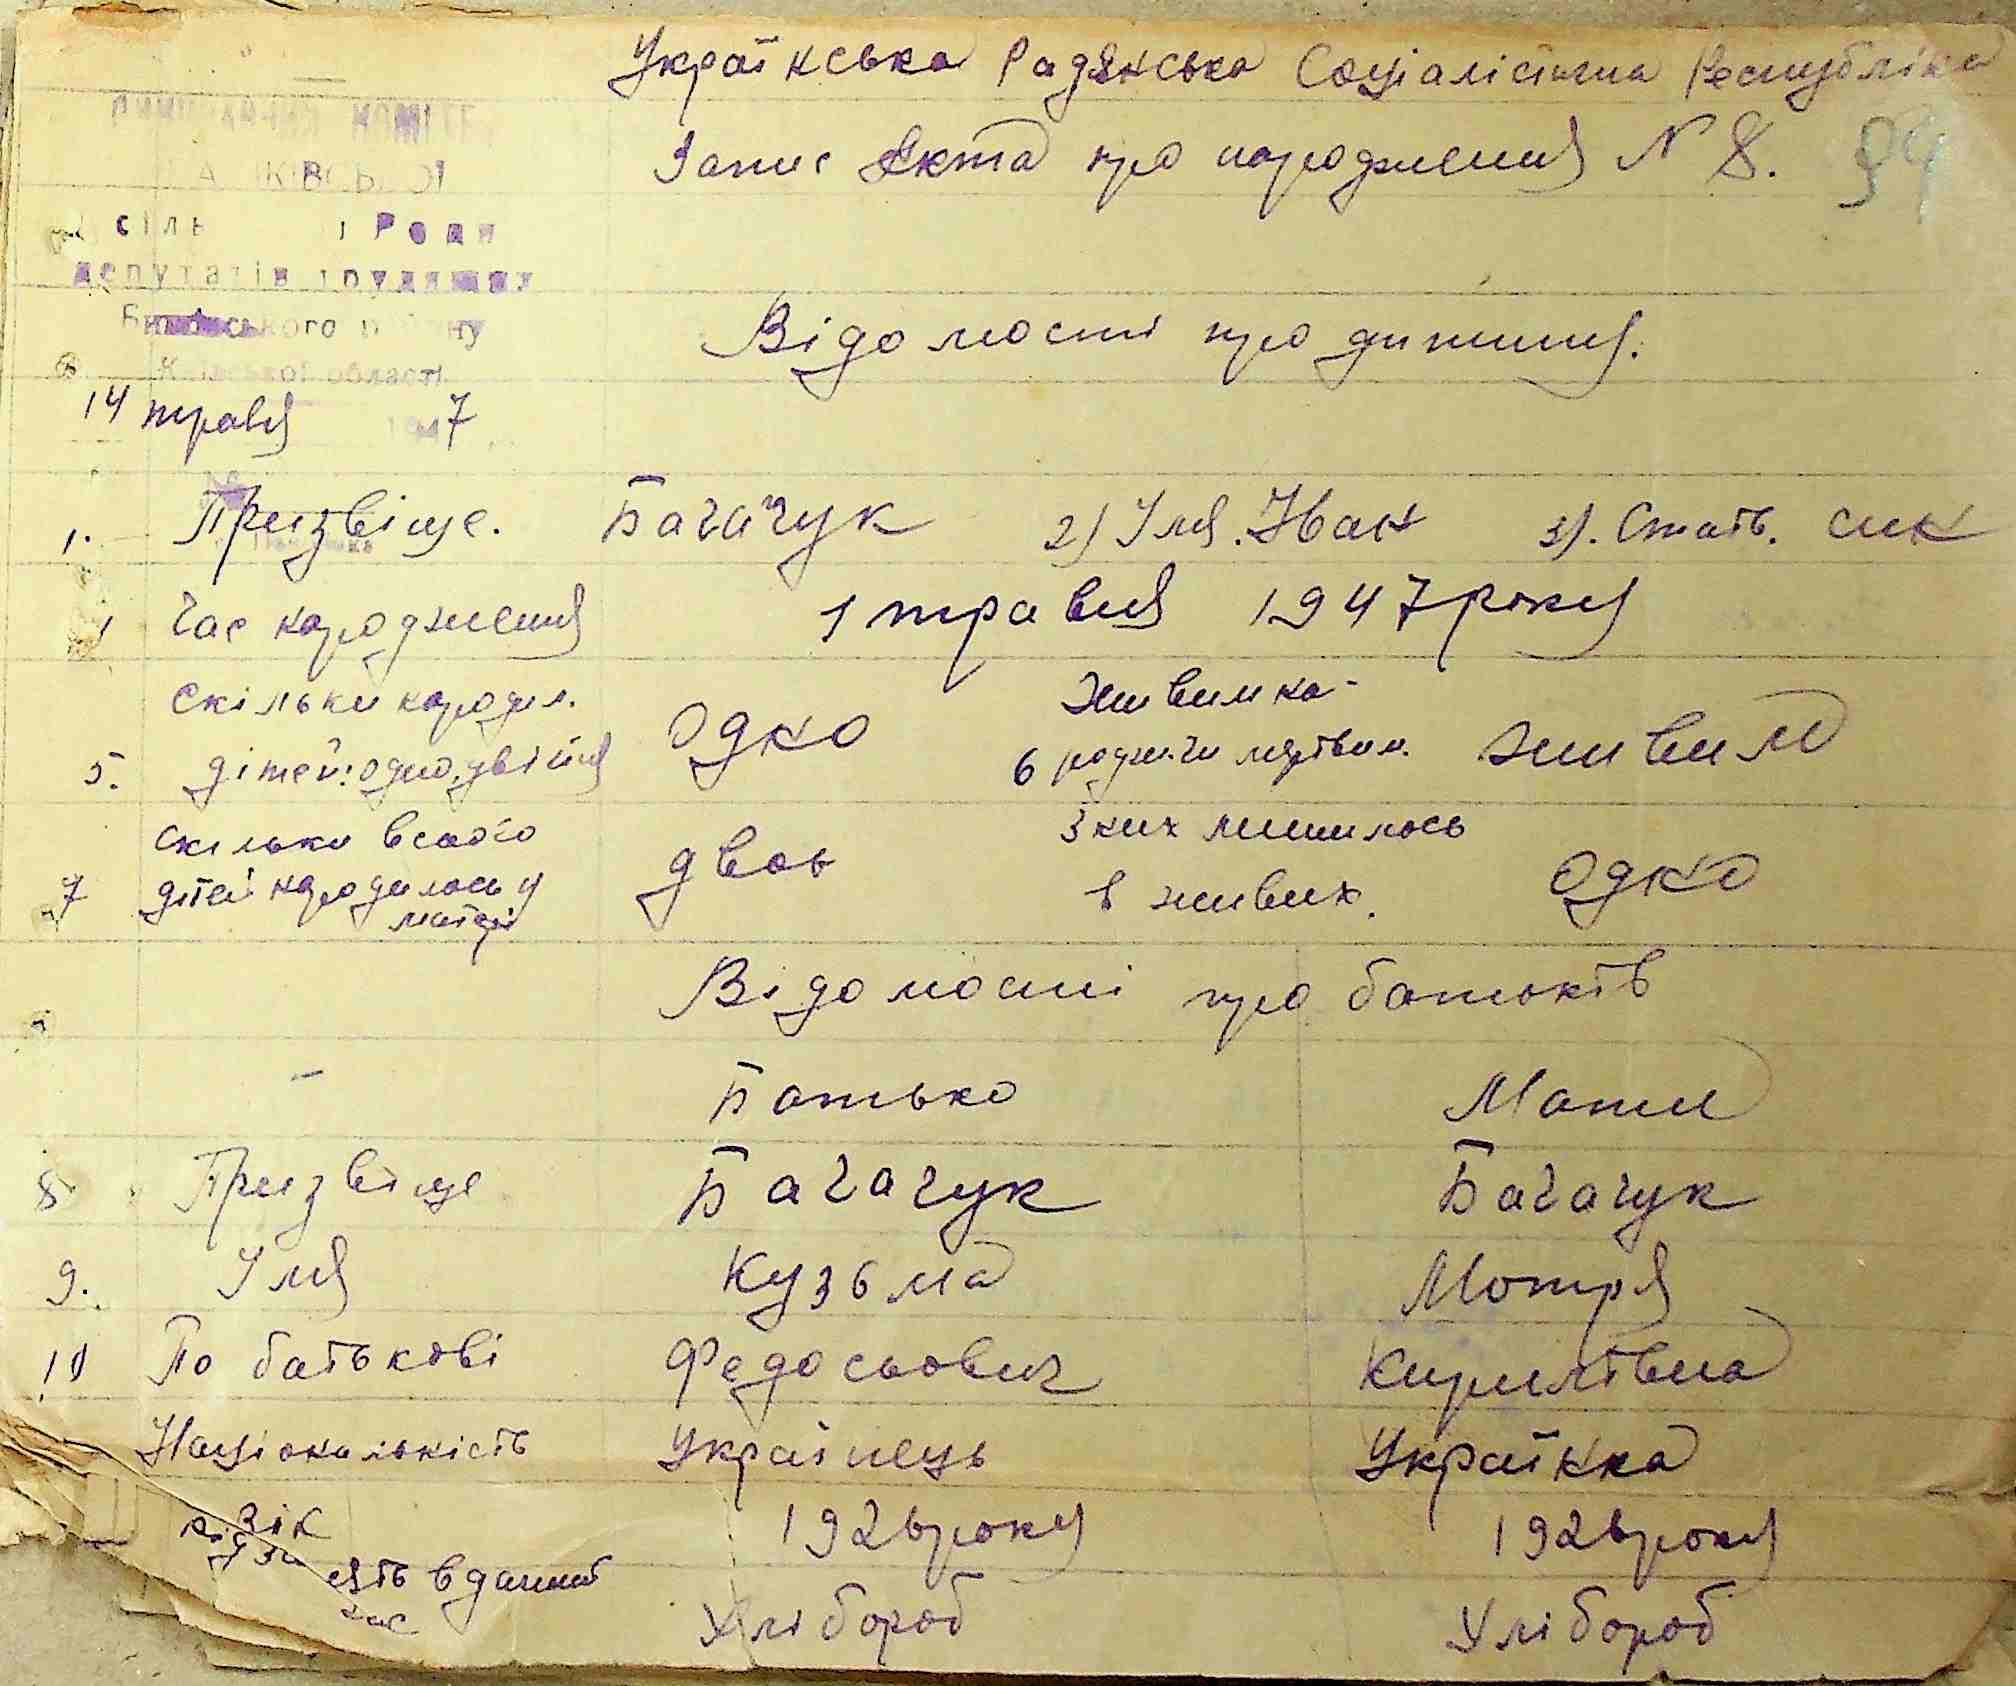 Українська Радянська Соціалістична Республіка
Запис Акта про народження N 8. 94
Ради
депутатів трудящих
Київської області
14 травня 1947
Відомості про дитину.
1. Призвіще. Багачук 2) Імя. Іван 3). Стать. син
Час народження 1 травня 1947 року
5. Скільки народил. дітей: одно, двійня одно 6 Живим на-родж. чи мертвим. живим
7 Скільки всього дітей народилось у матері двоє З них лишилось в живих. одно
Відомості про батьків
Батько Мати
8 Призвіще Багачук Багачук
9. Імя Кузьма Мотря
10 По батькові Федосьович Кирилівна
Національність Українець Українка
Вік 1926 року 1926 року
в данний час Хлібороб Хлібороб